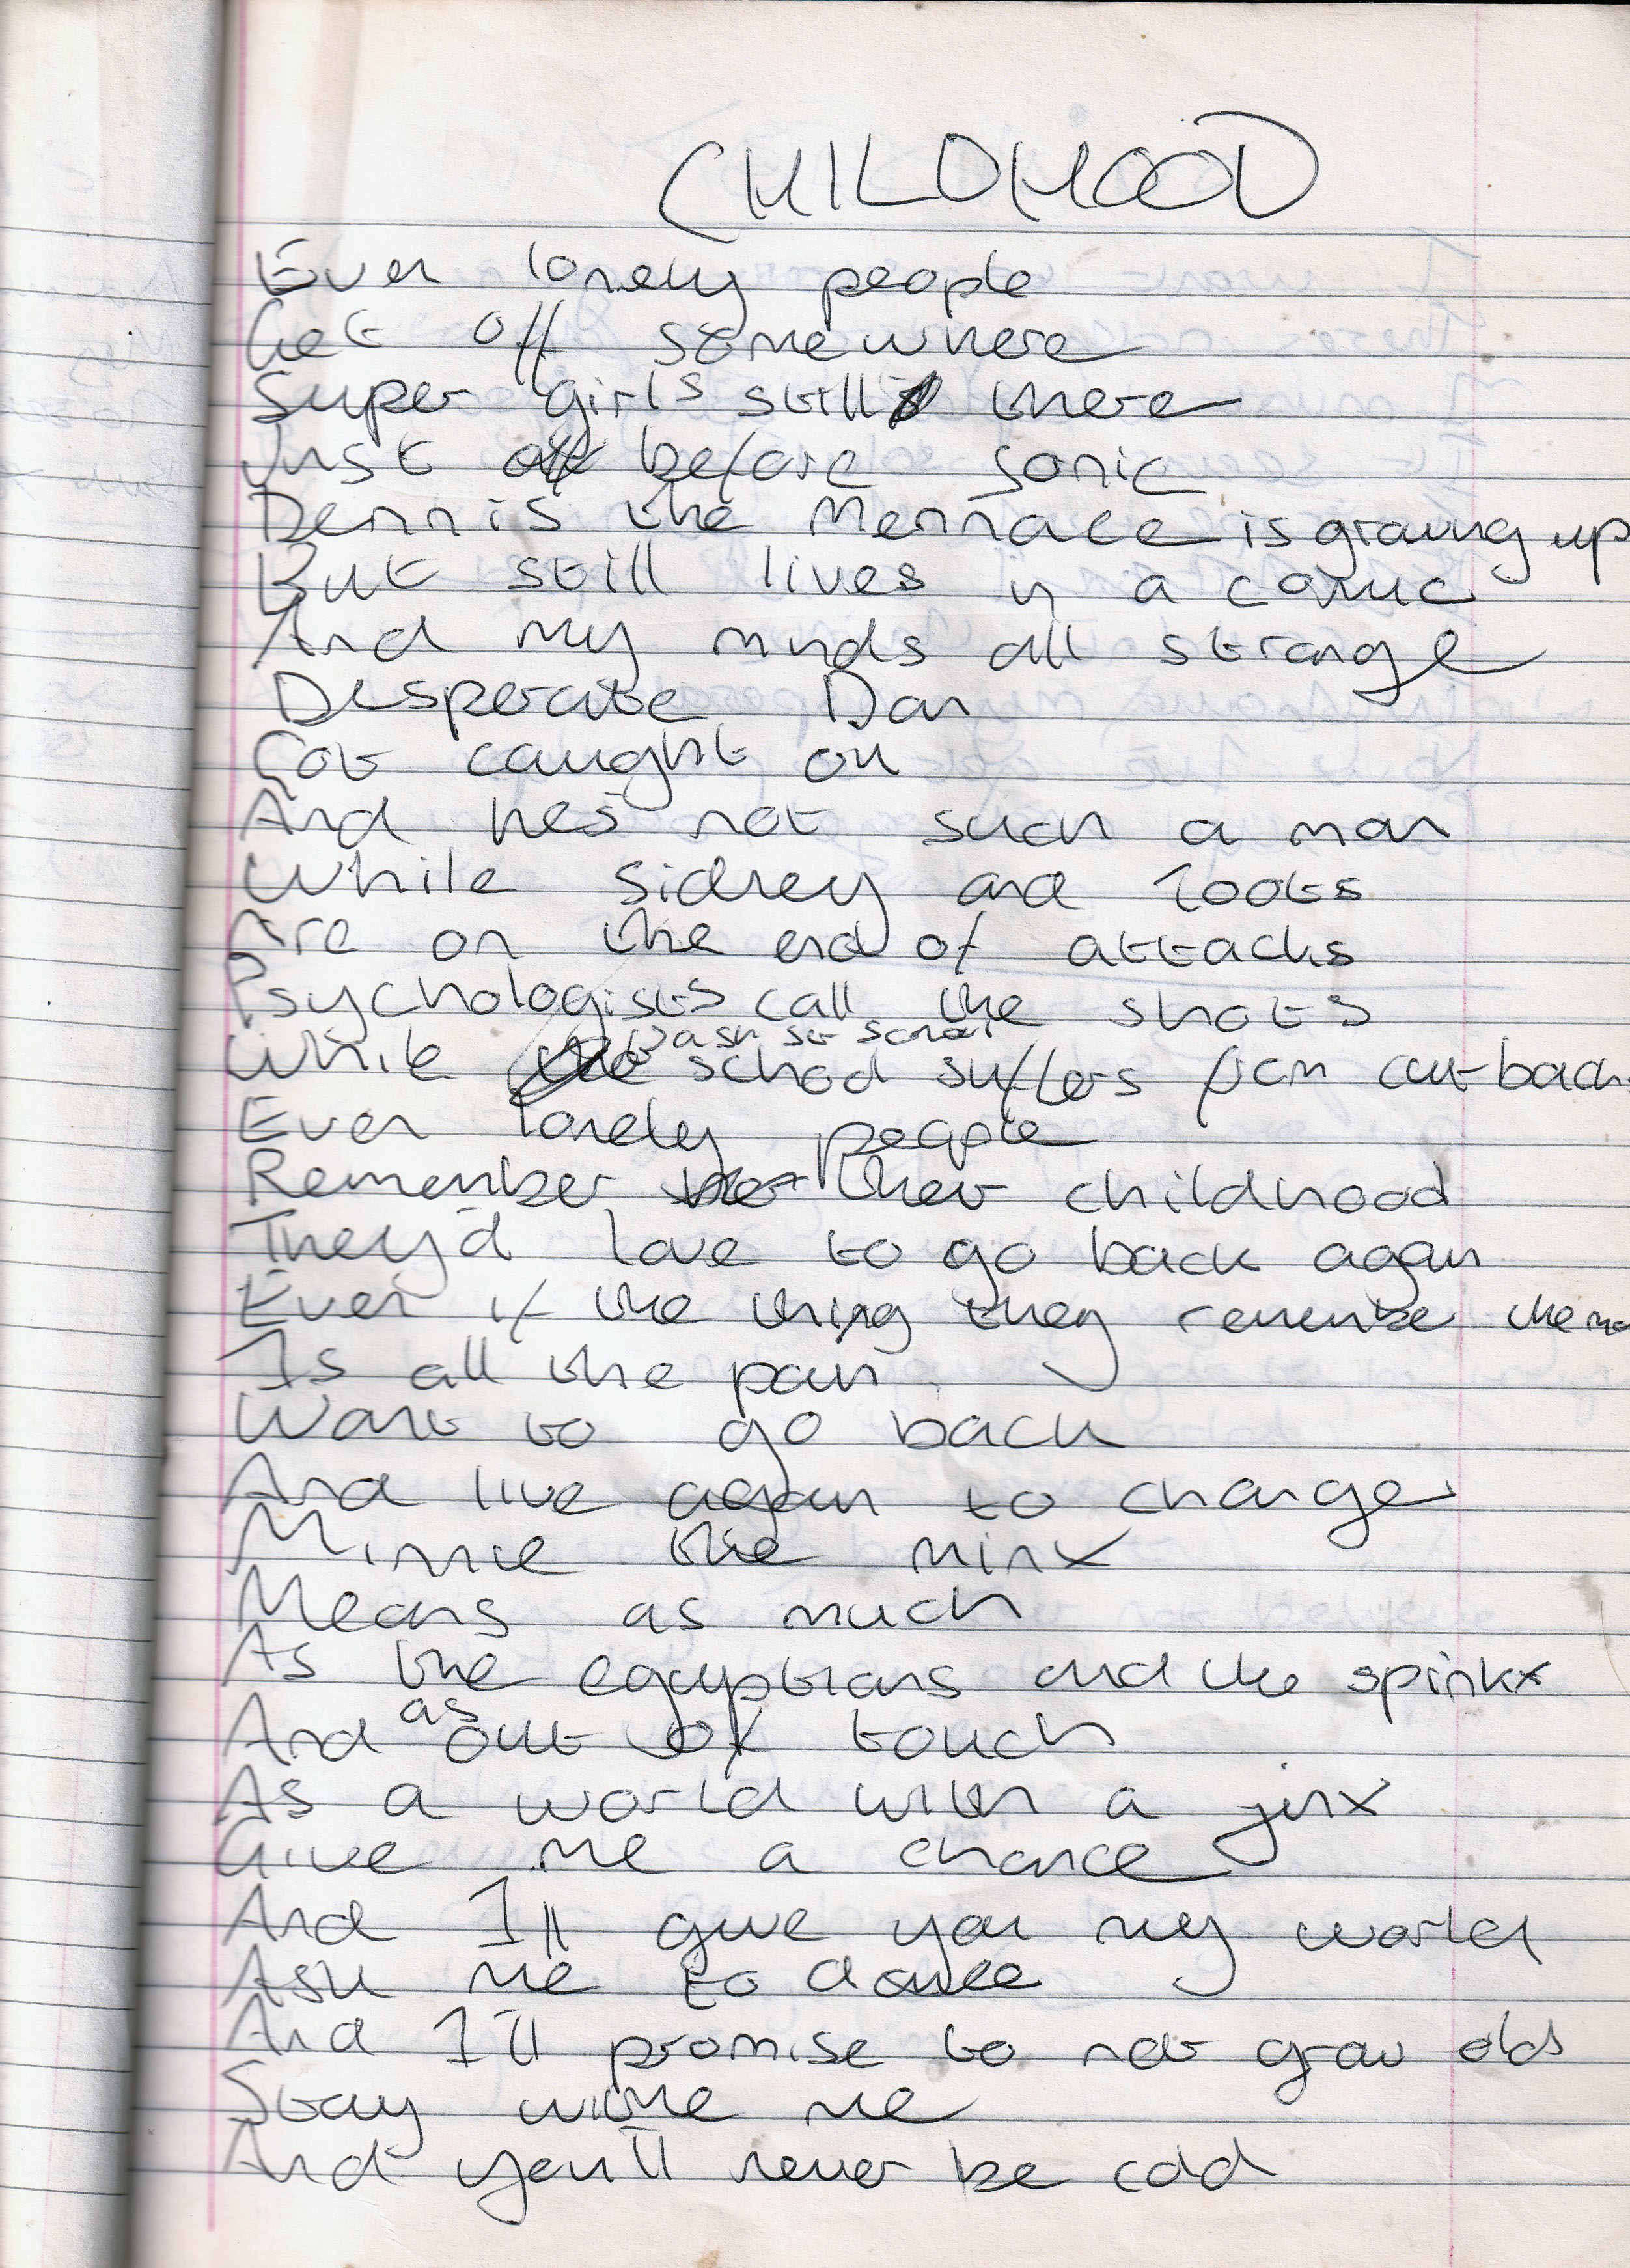 CHILDHOOD
Even lonely people
Get off somewhere
Super girls still there
Just before sonic
Dennis the Mennace is growing up
But still lives in a comic
And my minds all strange
Desperate Dan
Got caught on
And hes not such a man
While Sidney and Toots
Are on the end of attacks
Psychologists call the shots
While Bash st school school suffers from cut-backs
Even lonely people
Remember their childhood
They'd love to go back again
Even if the thing they remember the mo
Is all the pain
Want to go back
And live again to change
Minnie the minx
Means as much
As the egyptians and the spinkx
And as out of touch
As a world with a jinx
Give me a chance
And I'll give you my world
Ask me to dance
And I'll promise to not grow old
Stay withe me
And you'll never be cold